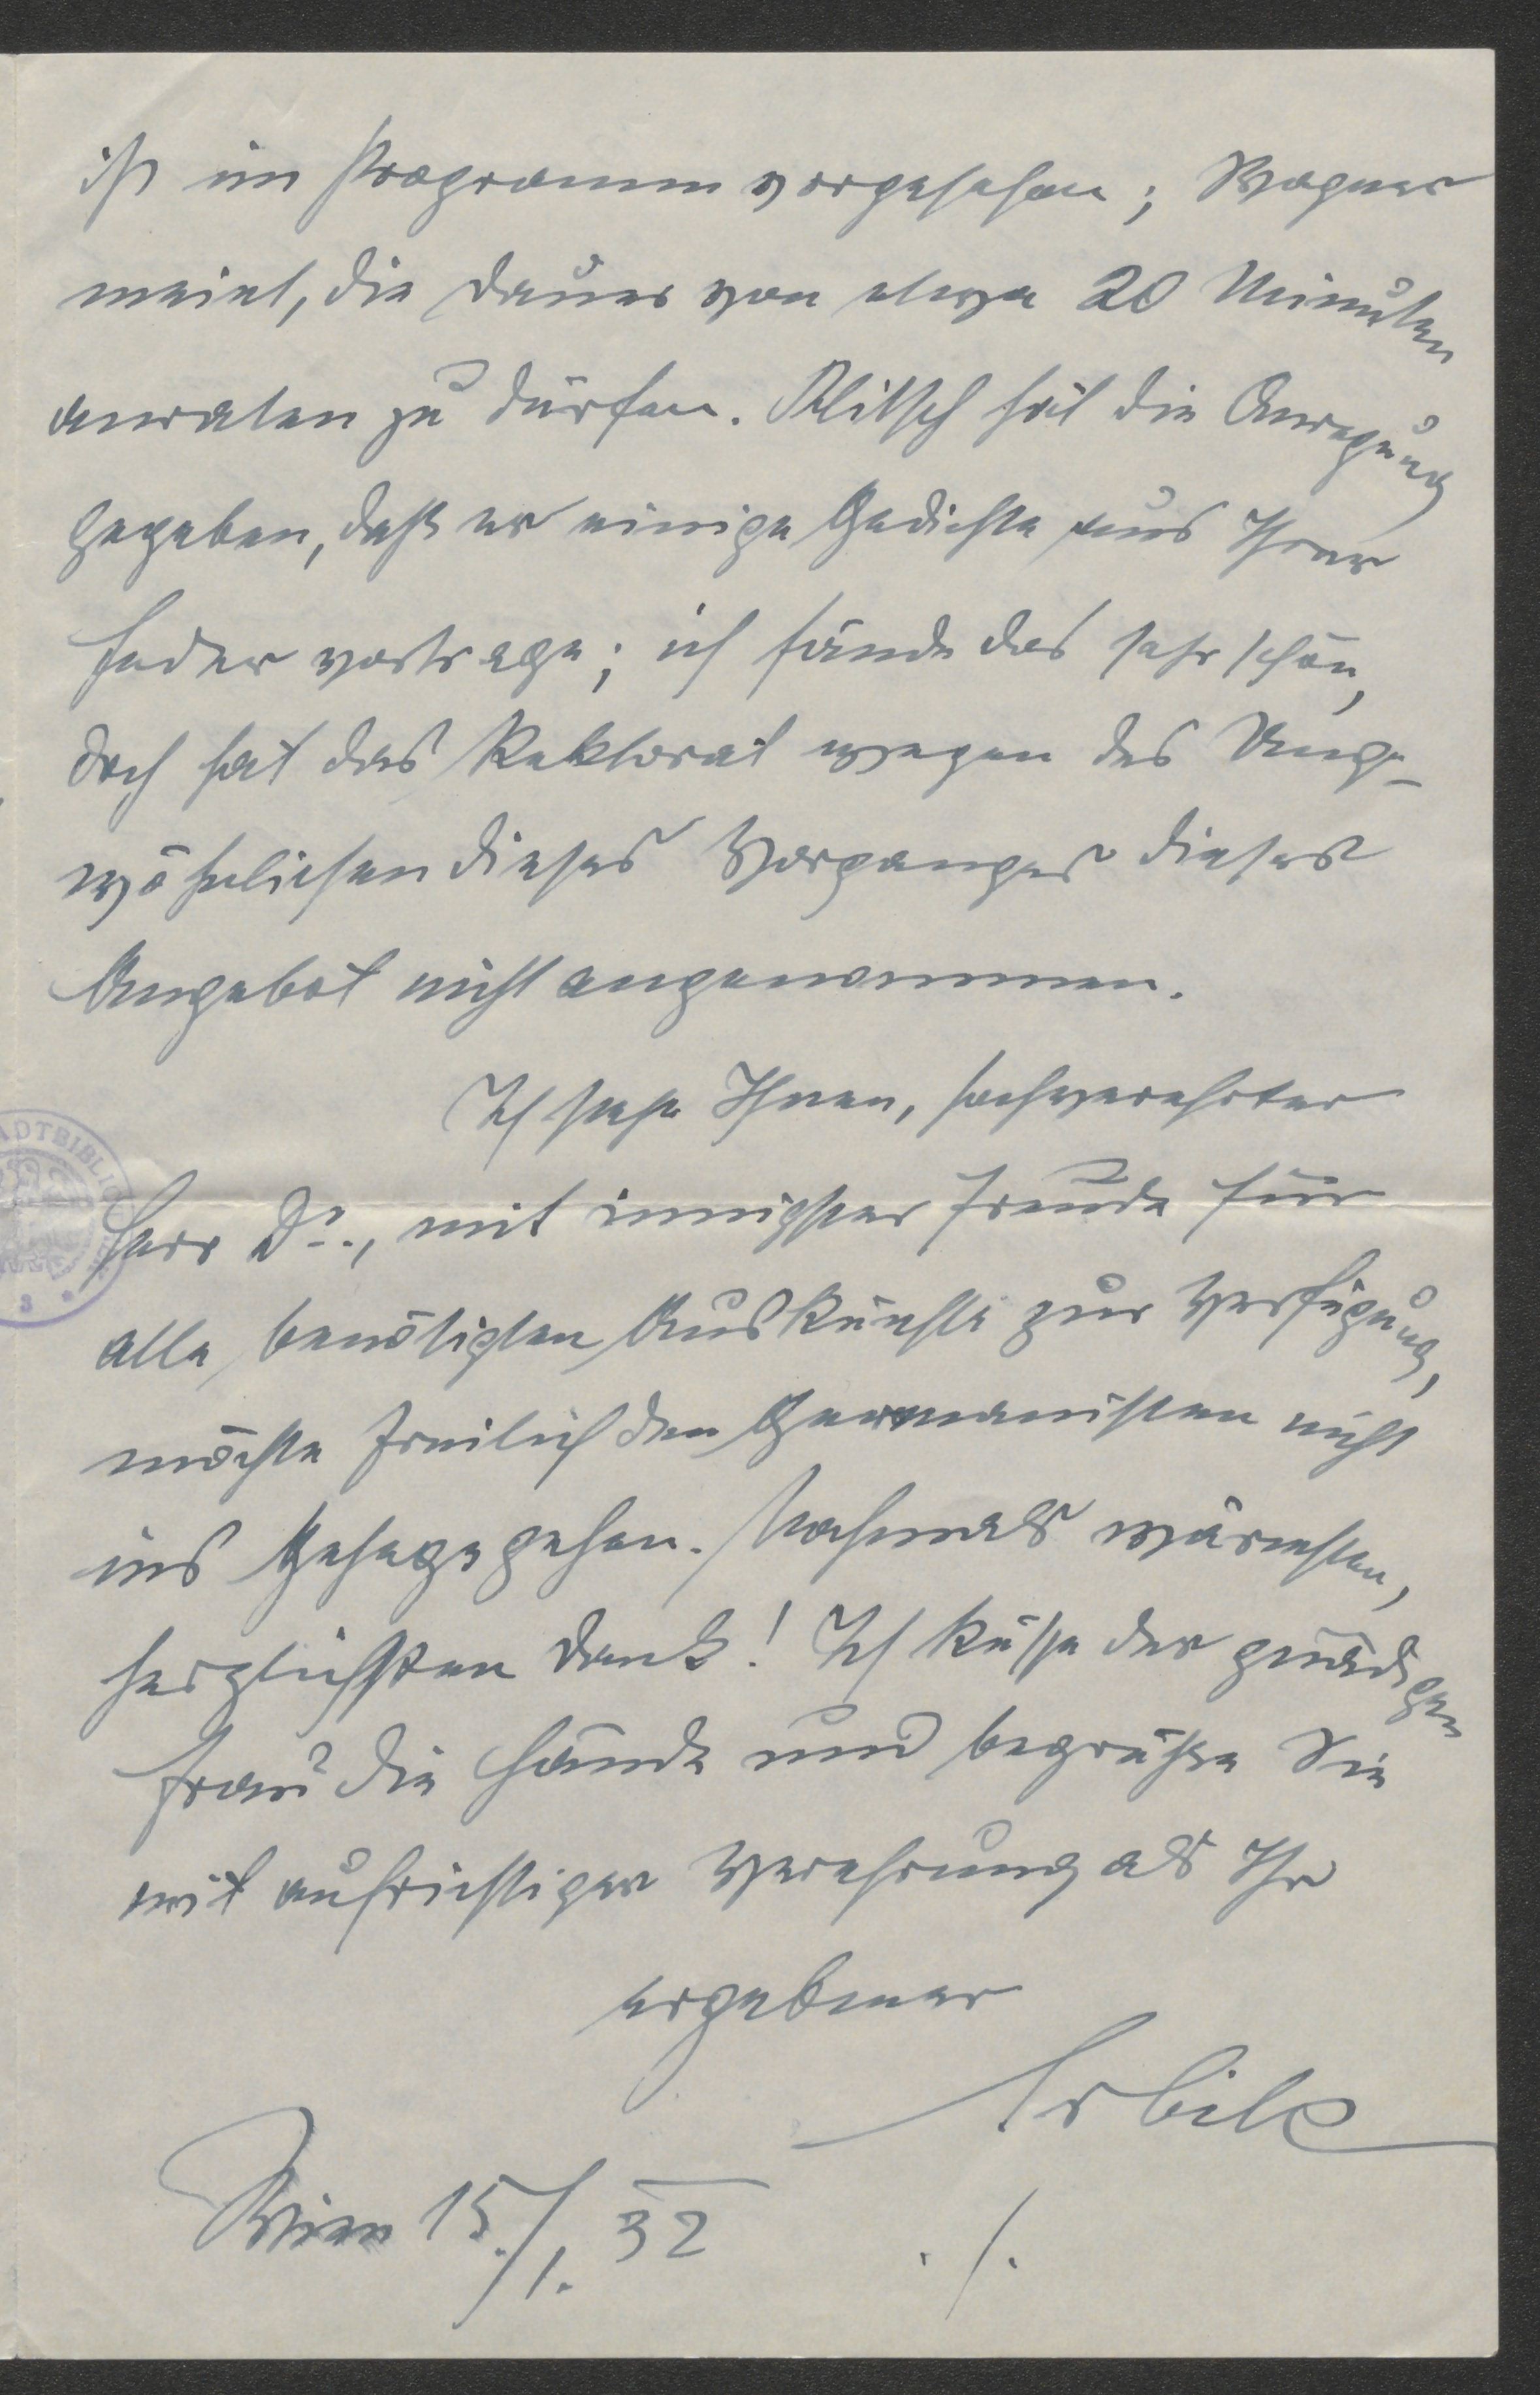 ist im Programm vorgesehen; Wagner
meint, die Dauer von etwa 20 Minuten
anraten zu dürfen. Klitsch hat die Anregung
gegeben, daß er einige Gedichte aus Ihrer
Feder vortrage; ich fände das sehr schön,
doch hat das Rektorat wegen des Unge-
wöhnlichen dieses Vorganges dieses
Angebot nicht angenommen.
Ich stehe Ihnen, hochverehrter
Herr Dr., mit innigster Freude für
alle benötigten Auskünfte zur Verfügung,
möchte freilich den Germanisten nicht
ins Gehege gehen. Nochmals wärmsten,
herzlichsten Dank! Ich küsse der gnädigen
Frau die Hände und begrüße Sie
mit aufrichtiger Verehrung als Ihr
ergebener
Wien 15./1. 32
./.